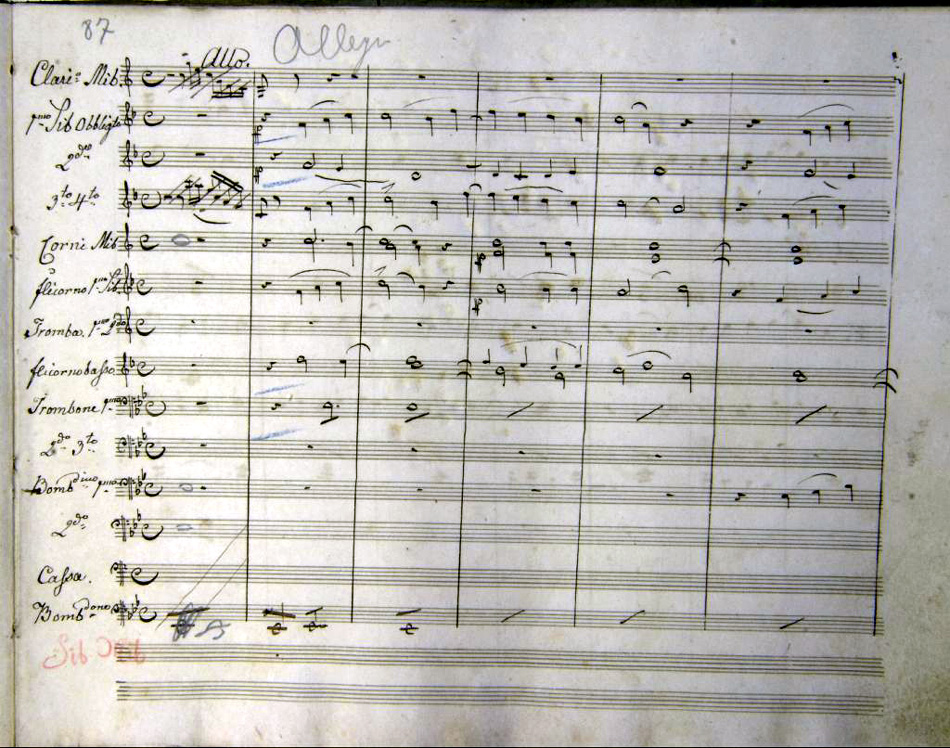 87 Allegr
Allo.
Clari: Mib.
1mo Sib Obbligto
2do
3to 4to
Corni Mib
flicorno 1mo Sib
Tromba. 1mo 2do
flicorno basso
Trombone 1mo
2do 3to
Bombdino 1mo
2do
Cassa.
Bombdono
Sib